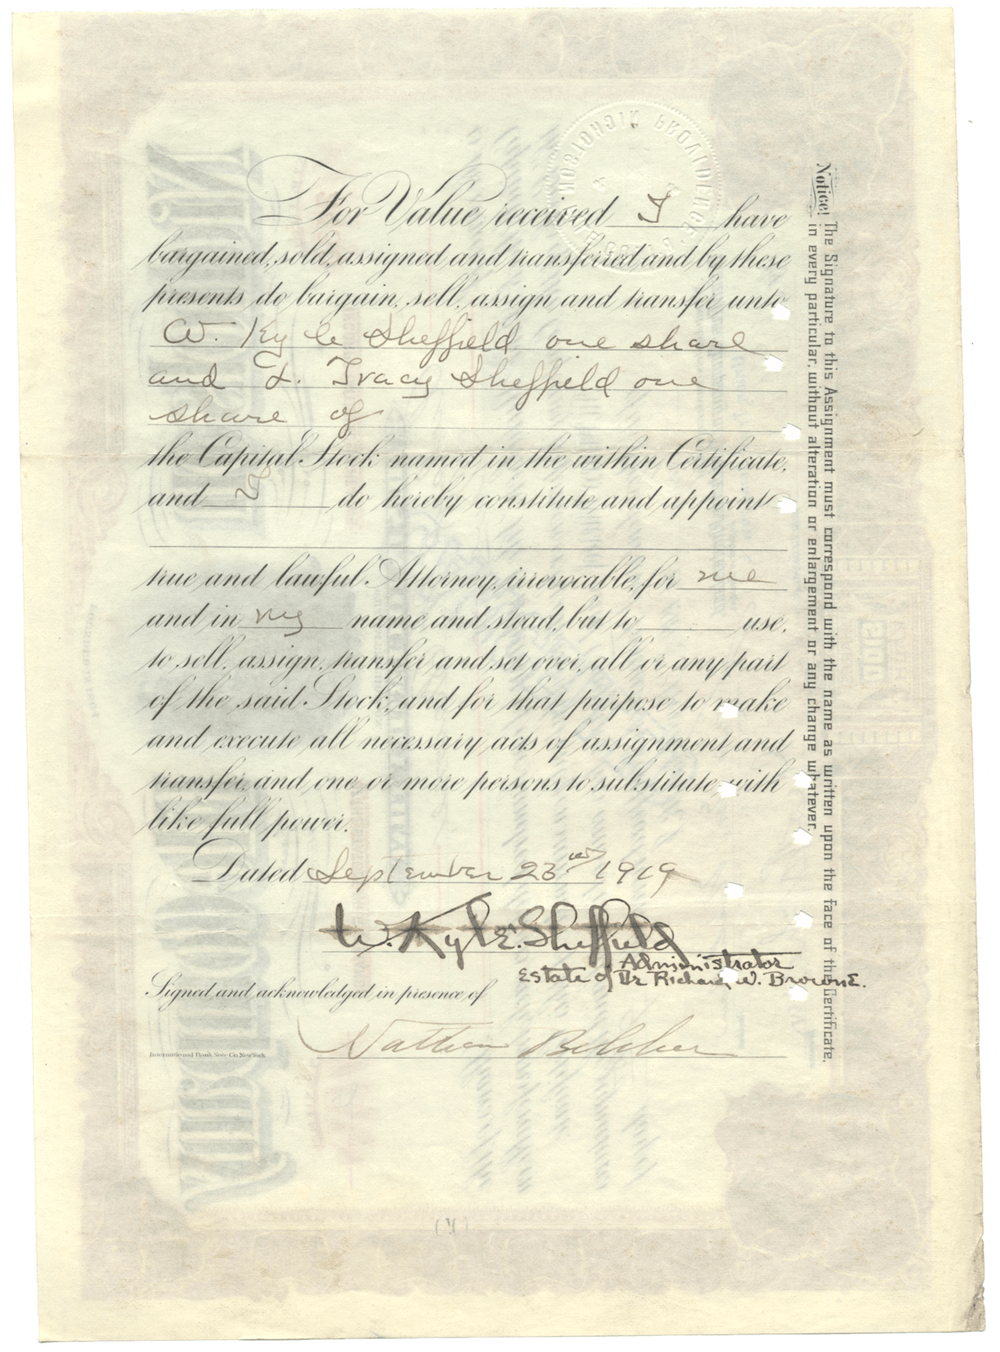 For Value received I have
bargained, sold, assigned and transferred and by these
presents do bargain, sell, assign and transfer unto
W. Kyle Sheffield one share
and L. Tracy Sheffield one
share of
the Capital Stock named in the within Certificate,
and I do hereby constitute and appoint
true and lawful Attorney, irrevocable, for me
and in my name and stead, but to use,
to sell, assign, transfer and set over, all or any part
of the said Stock, and for that purpose to make
and execute all necessary acts of assignment and
transfer, and one or more persons to substitute with
like full power.
Dated September 23 1919
W. Kyle Sheffield
Administrator
Estate of Dr Richard W. Browne.
Signed and acknowledged in presence of
Nathan Belcher
International Bank Note Co. New York
Notice! The Signature to this Assignment must correspond with the name as written upon the face of the Certificate,
in every particular, without alteration or enlargement or any change whatever.